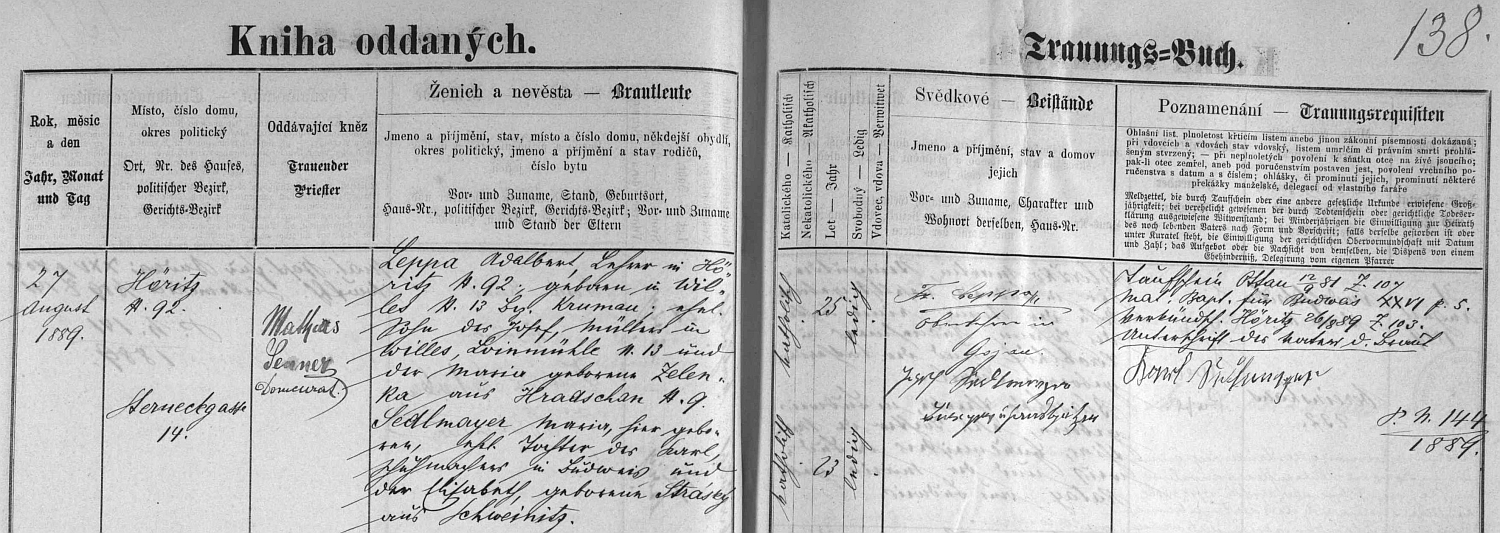 138.
Kniha oddaných.
Trauungs=Buch.
Rok, měsíc
a den
Jahr, Monat
und Tag
Místo, číslo domu,
okres politický
Ort, Nr. des Hauses,
politischer Bezirk,
Gerichts-Bezirk
Oddávající kněz
Trauender
Priester
Ženich a nevěsta — Brautleute
Jmeno a příjmění, stav, místo a číslo domu, někdejší obydlí,
okres politický, jmeno a příjmění a stav rodičů,
číslo bytu
Vor- und Zuname, Stand, Geburtsort,
Haus-Nr., politischer Bezirk, Gerichts-Bezirk; Vor- und Zuname
und Stand der Eltern
Katolického — Katholisch
Nekatolického — Akatholisch
Let — Jahr
Svobodný — Ledig
Vdovec, vdova — Verwitwet
Svědkové — Beistände
Jmeno a příjmění, stav a domov
jejich
Vor- und Zuname, Charakter und
Wohnort derselben, Haus-Nr.
Poznamenání — Trauungsrequisiten
Ohlašní list. plnoletost křticím listem anebo jinou zákonní písemností dokázaná;
při vdovcích a vdovách stav vdovský, listem umrlčím či právním smrti prohlá-
šením stvrzený; — při neplnoletých povolení k sňatku otce na živě jsoucího;
pak-li otec zemřel, aneb pod poručenstvím postaven jest, povolení vrchního po-
ručenstva s datum a s číslem; ohlášky, či prominutí jejich, prominutí některé
překážky manželské, delegací od vlastního faráře
Meldzettel, die durch Taufschein oder eine andere gesetzliche Urkunde erwiesene Groß-
jährigkeit; bei verehelicht gewesenen der durch Todtenschein oder gerichtliche Todeser-
klärung ausgewiesene Witwenstand; bei Minderjährigen die Einwilligung zur Heirath
des noch lebenden Vaters nach Form und Vorschrift; falls derselbe gestorben ist oder
unter Kuratel steht, die Einwilligung der gerichtlichen Obervormundschaft mit Datum
und Zahl; das Aufgebot oder die Nachsicht von demselben, die Dispens von einem
Ehehinderniß, Delegirung vom eigenen Pfarrer
27
August
1889.
Höritz
N. 92.
Sterneckgasse
14.
Mathias
Domcurat.
Leppa Adalbert, Lehrer in Hö-
ritz N. 92; geboren in Wil-
les N. 13 Bez. Krumau; ehel.
Sohn des Josef, Müllers in
Willes, N. 13 und
der Maria geborene Zelen-
ka aus Hradschan N. 9.
Sedlmayer Maria, hier gebo-
ren, ehel. Tochter des Karl,
Schuhmachers in Budweis und
der Elisabeth, geborene
aus Schweinitz.
katholisch
25
ledig
katholisch
23
ledig
Fr. Leppa
Oberlehrer in
Gojau.
Taufschein Ottau 12/9 81 Z. 107
Mat. Bapt. für Budweis XXVI p. 5.
Verkündsch. Höritz 26/8 89 Z. 103.
Unterschrift des Vaters d. Braut
Karl
P. N. 144
1889.